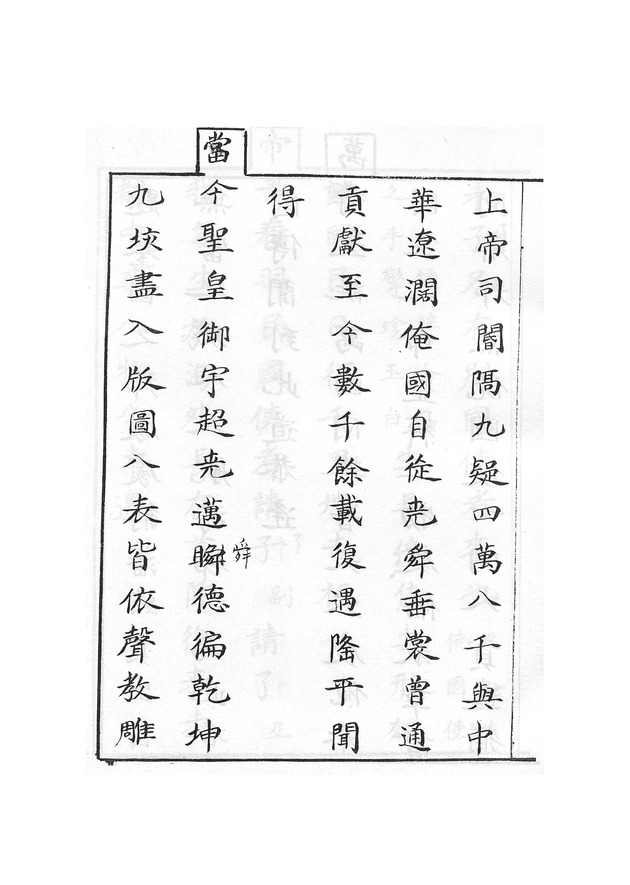 上帝司閽隔九疑四萬八千與中
華遼濶俺國自從尭舜垂裳曾通
貢獻至今數千餘載復遇隆平聞
得
當
今聖皇御宇超尭邁瞬德徧乾坤
舜
九垓盡入版圖八表皆依聲教雕